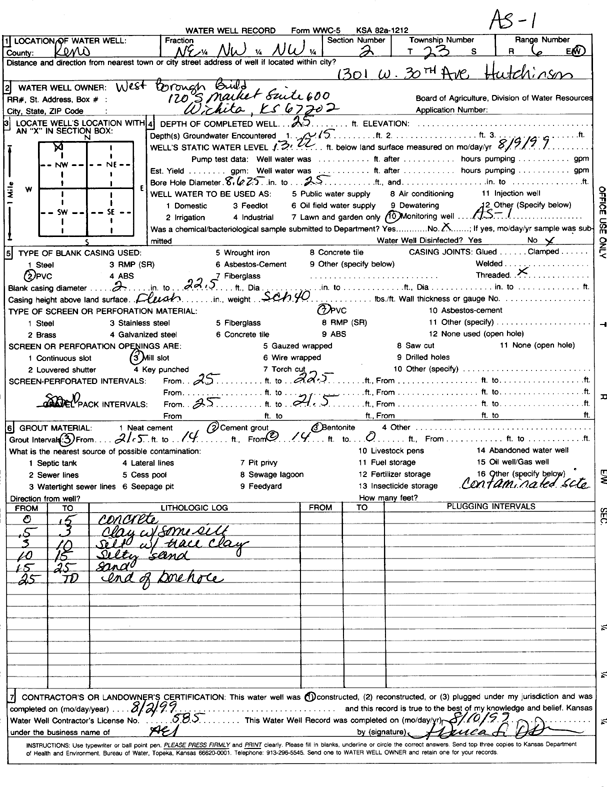 AS-1
WATER WELL RECORD Form WWC-5 KSA 82a-1212
1 LOCATION OF WATER WELL: Fraction Section Number Township Number Range Number
County: Reno NE ¼ NW ¼ NW ¼ 2 T 23 S R 6 E/W
Distance and direction from nearest town or city street address of well if located within city?
1301 W. 30TH Ave Hutchinson
2 WATER WELL OWNER: West Borough Build
RR#, St. Address, Box # : 120 S Market Suite 600 Board of Agriculture, Division of Water Resources
City, State, ZIP Code : Wichita, KS 67202 Application Number:
3 LOCATE WELL'S LOCATION WITH AN "X" IN SECTION BOX:
N
X
NW NE
W E
SW SE
S
1 Mile
4 DEPTH OF COMPLETED WELL 25 ft. ELEVATION:
Depth(s) Groundwater Encountered 1. 15 ft. 2. ft. 3. ft.
WELL'S STATIC WATER LEVEL 13.22 ft. below land surface measured on mo/day/yr 8/9/99
Pump test data: Well water was ft. after hours pumping gpm
Est. Yield gpm: Well water was ft. after hours pumping gpm
Bore Hole Diameter 8.625 in. to 25 ft., and in. to ft.
WELL WATER TO BE USED AS: 5 Public water supply 8 Air conditioning 11 Injection well
1 Domestic 3 Feedlot 6 Oil field water supply 9 Dewatering 12 Other (Specify below)
2 Irrigation 4 Industrial 7 Lawn and garden only 10 Monitoring well AS-1
Was a chemical/bacteriological sample submitted to Department? Yes No X ; If yes, mo/day/yr sample was submitted
Water Well Disinfected? Yes No X
5 TYPE OF BLANK CASING USED: 5 Wrought iron 8 Concrete tile CASING JOINTS: Glued Clamped
1 Steel 3 RMP (SR) 6 Asbestos-Cement 9 Other (specify below) Welded
2 PVC 4 ABS 7 Fiberglass Threaded X
Blank casing diameter 2 in. to 22.5 ft., Dia in. to ft., Dia in. to ft.
Casing height above land surface Flush in., weight Sch 40 lbs./ft. Wall thickness or gauge No.
TYPE OF SCREEN OR PERFORATION MATERIAL: 7 PVC 10 Asbestos-cement
1 Steel 3 Stainless steel 5 Fiberglass 8 RMP (SR) 11 Other (specify)
2 Brass 4 Galvanized steel 6 Concrete tile 9 ABS 12 None used (open hole)
SCREEN OR PERFORATION OPENINGS ARE: 5 Gauzed wrapped 8 Saw cut 11 None (open hole)
1 Continuous slot 3 Mill slot 6 Wire wrapped 9 Drilled holes
2 Louvered shutter 4 Key punched 7 Torch cut 10 Other (specify)
SCREEN-PERFORATED INTERVALS: From 25 ft. to 22.5 ft., From ft. to ft.
From ft. to ft., From ft. to ft.
PACK INTERVALS: From 25 ft. to 21.5 ft., From ft. to ft.
From ft. to ft., From ft. to ft.
6 GROUT MATERIAL: 1 Neat cement 2 Cement grout 3 Bentonite 4 Other
Grout Intervals: 3 From 21.5 ft. to 14 ft., From 2 14 ft. to 0 ft., From ft. to ft.
What is the nearest source of possible contamination: 10 Livestock pens 14 Abandoned water well
1 Septic tank 4 Lateral lines 7 Pit privy 11 Fuel storage 15 Oil well/Gas well
2 Sewer lines 5 Cess pool 8 Sewage lagoon 12 Fertilizer storage 16 Other (specify below)
3 Watertight sewer lines 6 Seepage pit 9 Feedyard 13 Insecticide storage contaminated site
Direction from well? How many feet?
FROM TO LITHOLOGIC LOG FROM TO PLUGGING INTERVALS
0 .5 concrete
.5 3 clay w/some silt
3 10 silt w/ trace clay
10 15 silty sand
15 25 sand
25 TD end of borehole
7 CONTRACTOR'S OR LANDOWNER'S CERTIFICATION: This water well was (1) constructed, (2) reconstructed, or (3) plugged under my jurisdiction and was
completed on (mo/day/year) 8/2/99 and this record is true to the best of my knowledge and belief. Kansas
Water Well Contractor's License No. 585 This Water Well Record was completed on (mo/day/yr) 8/10/99
under the business name of AEI by (signature)
INSTRUCTIONS: Use typewriter or ball point pen. PLEASE PRESS FIRMLY and PRINT clearly. Please fill in blanks, underline or circle the correct answers. Send top three copies to Kansas Department
of Health and Environment, Bureau of Water, Topeka, Kansas 66620-0001. Telephone: 913-296-5545. Send one to WATER WELL OWNER and retain one for your records.
OFFICE USE ONLY
T
R
E/W
SEC.
¼
¼
¼